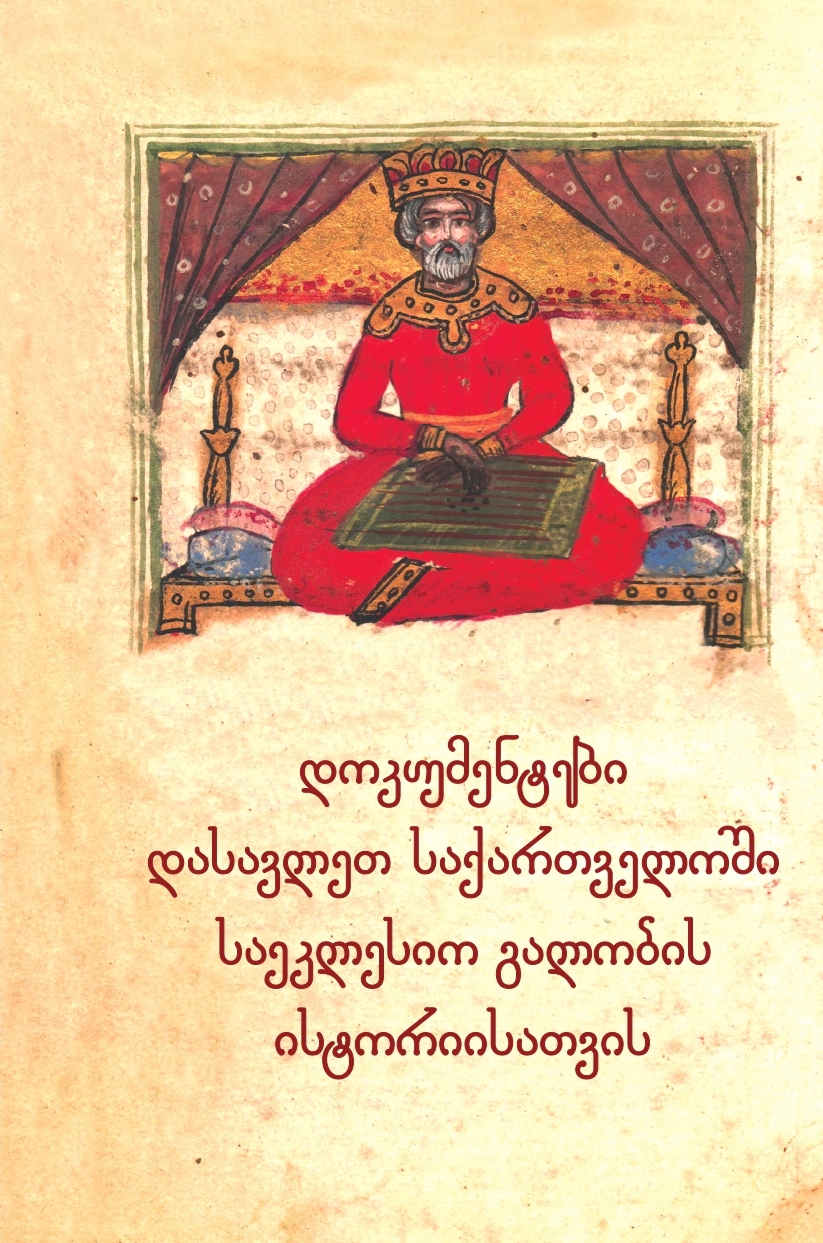 დოკუმენტები
დასავლეთ საქართველოში
საეკლესიო გალობის
ისტორიისათვის